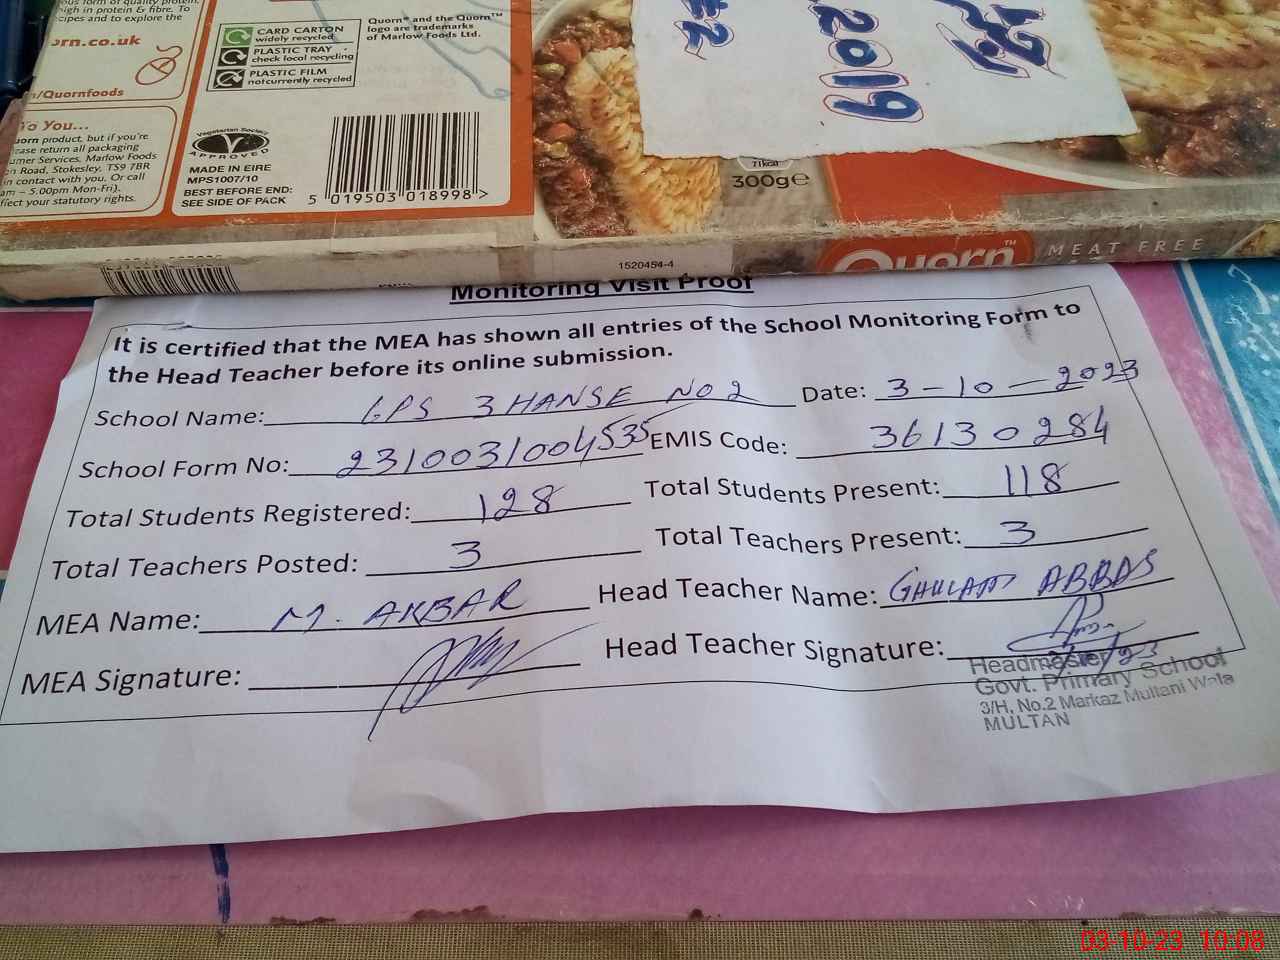 high in protein & fibre. To
cipes and to explore the
orn.co.uk
n/Quornfoods
To You...
uorn product, but if you're
ease return all packaging
umer Services, Marlow Foods
n Road, Stokesley, TS9 7BR
in contact with you. Or call
am – 5.00pm Mon-Fri).
ffect your statutory rights.
CARD CARTON
widely recycled
PLASTIC TRAY
check local recycling
PLASTIC FILM
not currently recycled
Quorn® and the Quorn™
logo are trademarks
of Marlow Foods Ltd.
Vegetarian Society
APPROVED
MADE IN EIRE
MPS1007/10
BEST BEFORE END:
SEE SIDE OF PACK
5 019503 018998 >
2019
71kcal
300g℮
1520454-4
Quorn™ MEAT FREE
Monitoring Visit Proof
It is certified that the MEA has shown all entries of the School Monitoring Form to
the Head Teacher before its online submission.
School Name: GPS 3HANSE NO 2 Date: 3-10-2023
School Form No: 2310031004535 EMIS Code: 36130284
Total Students Registered: 128 Total Students Present: 118
Total Teachers Posted: 3 Total Teachers Present: 3
MEA Name: M. AKBAR Head Teacher Name: GHULAM ABBAS
MEA Signature: Head Teacher Signature:
Headmaster
Govt. Primary School
3/H, No.2 Markaz Multani Wala
MULTAN
03-10-23 10:08